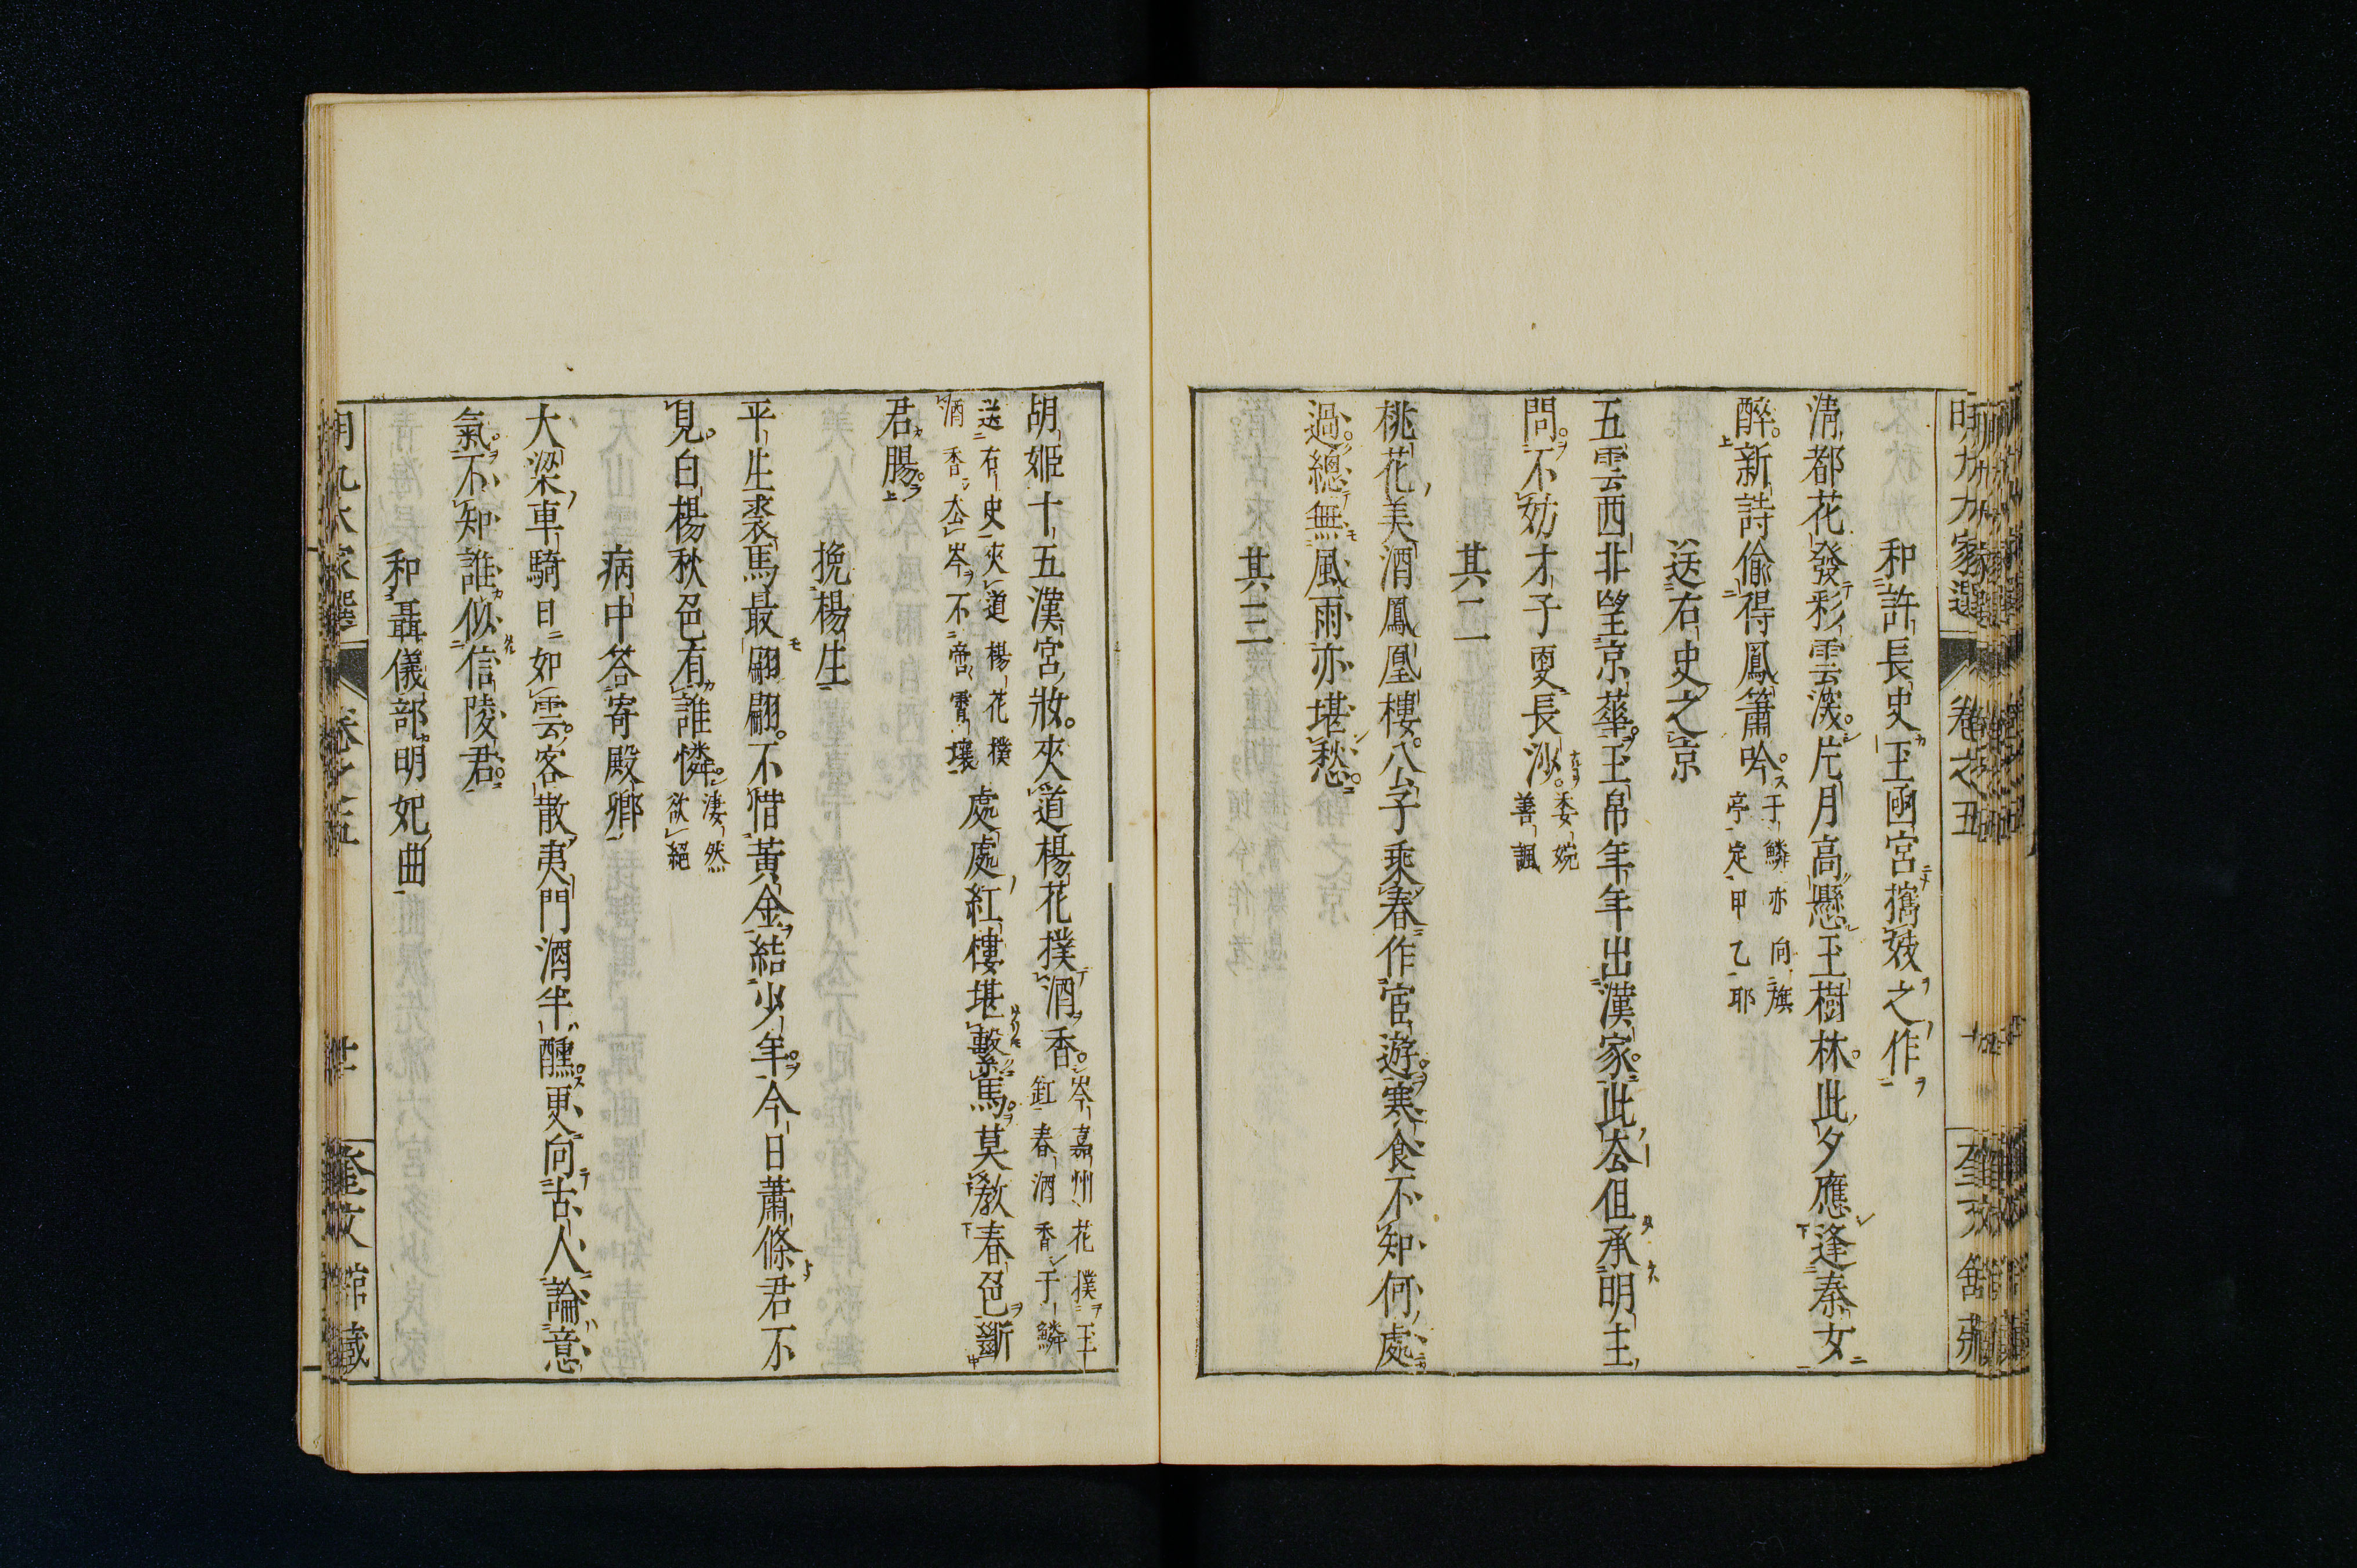 和許長史王函宮攜妓之作
清都花發彩雲深片月高懸玉樹林此夕應逢秦女
醉新詩偷得鳳簫吟于鱗亦向旗亭定甲乙耶
送右史之京
五雲西北望京華玉帛年年出漢家此去但承明主
問不妨才子更長沙委婉善諷
其二
桃花美酒鳳凰樓公子乘春作宦遊寒食不知何處
過總無風雨亦堪愁
其三
胡姬十五漢宮妝夾道楊花撲酒香岑嘉州花撲玉缸春酒香于鱗
送右史夾道楊花撲酒香去岑不啻霄壤處處紅樓堪繫馬莫敎春色斷
君腸
挽楊生
平生裘馬最翩翩不惜黃金結少年今日蕭條君不
見白楊秋色有誰憐淒然欲絕
病中答寄殿卿
大梁車騎日如雲客散夷門酒半醺更向古人論意
氣不知誰似信陵君
和聶儀部明妃曲